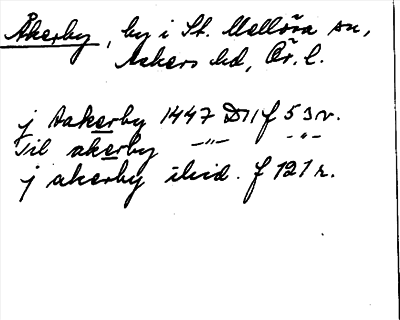 Åkerby, by i St. Mellösa sn,
Askers hd, Ör. l.
j Aakerby 1447 D11 f 53v.
Til akerby –"– –"–
j akerby ibid. f 121 r.